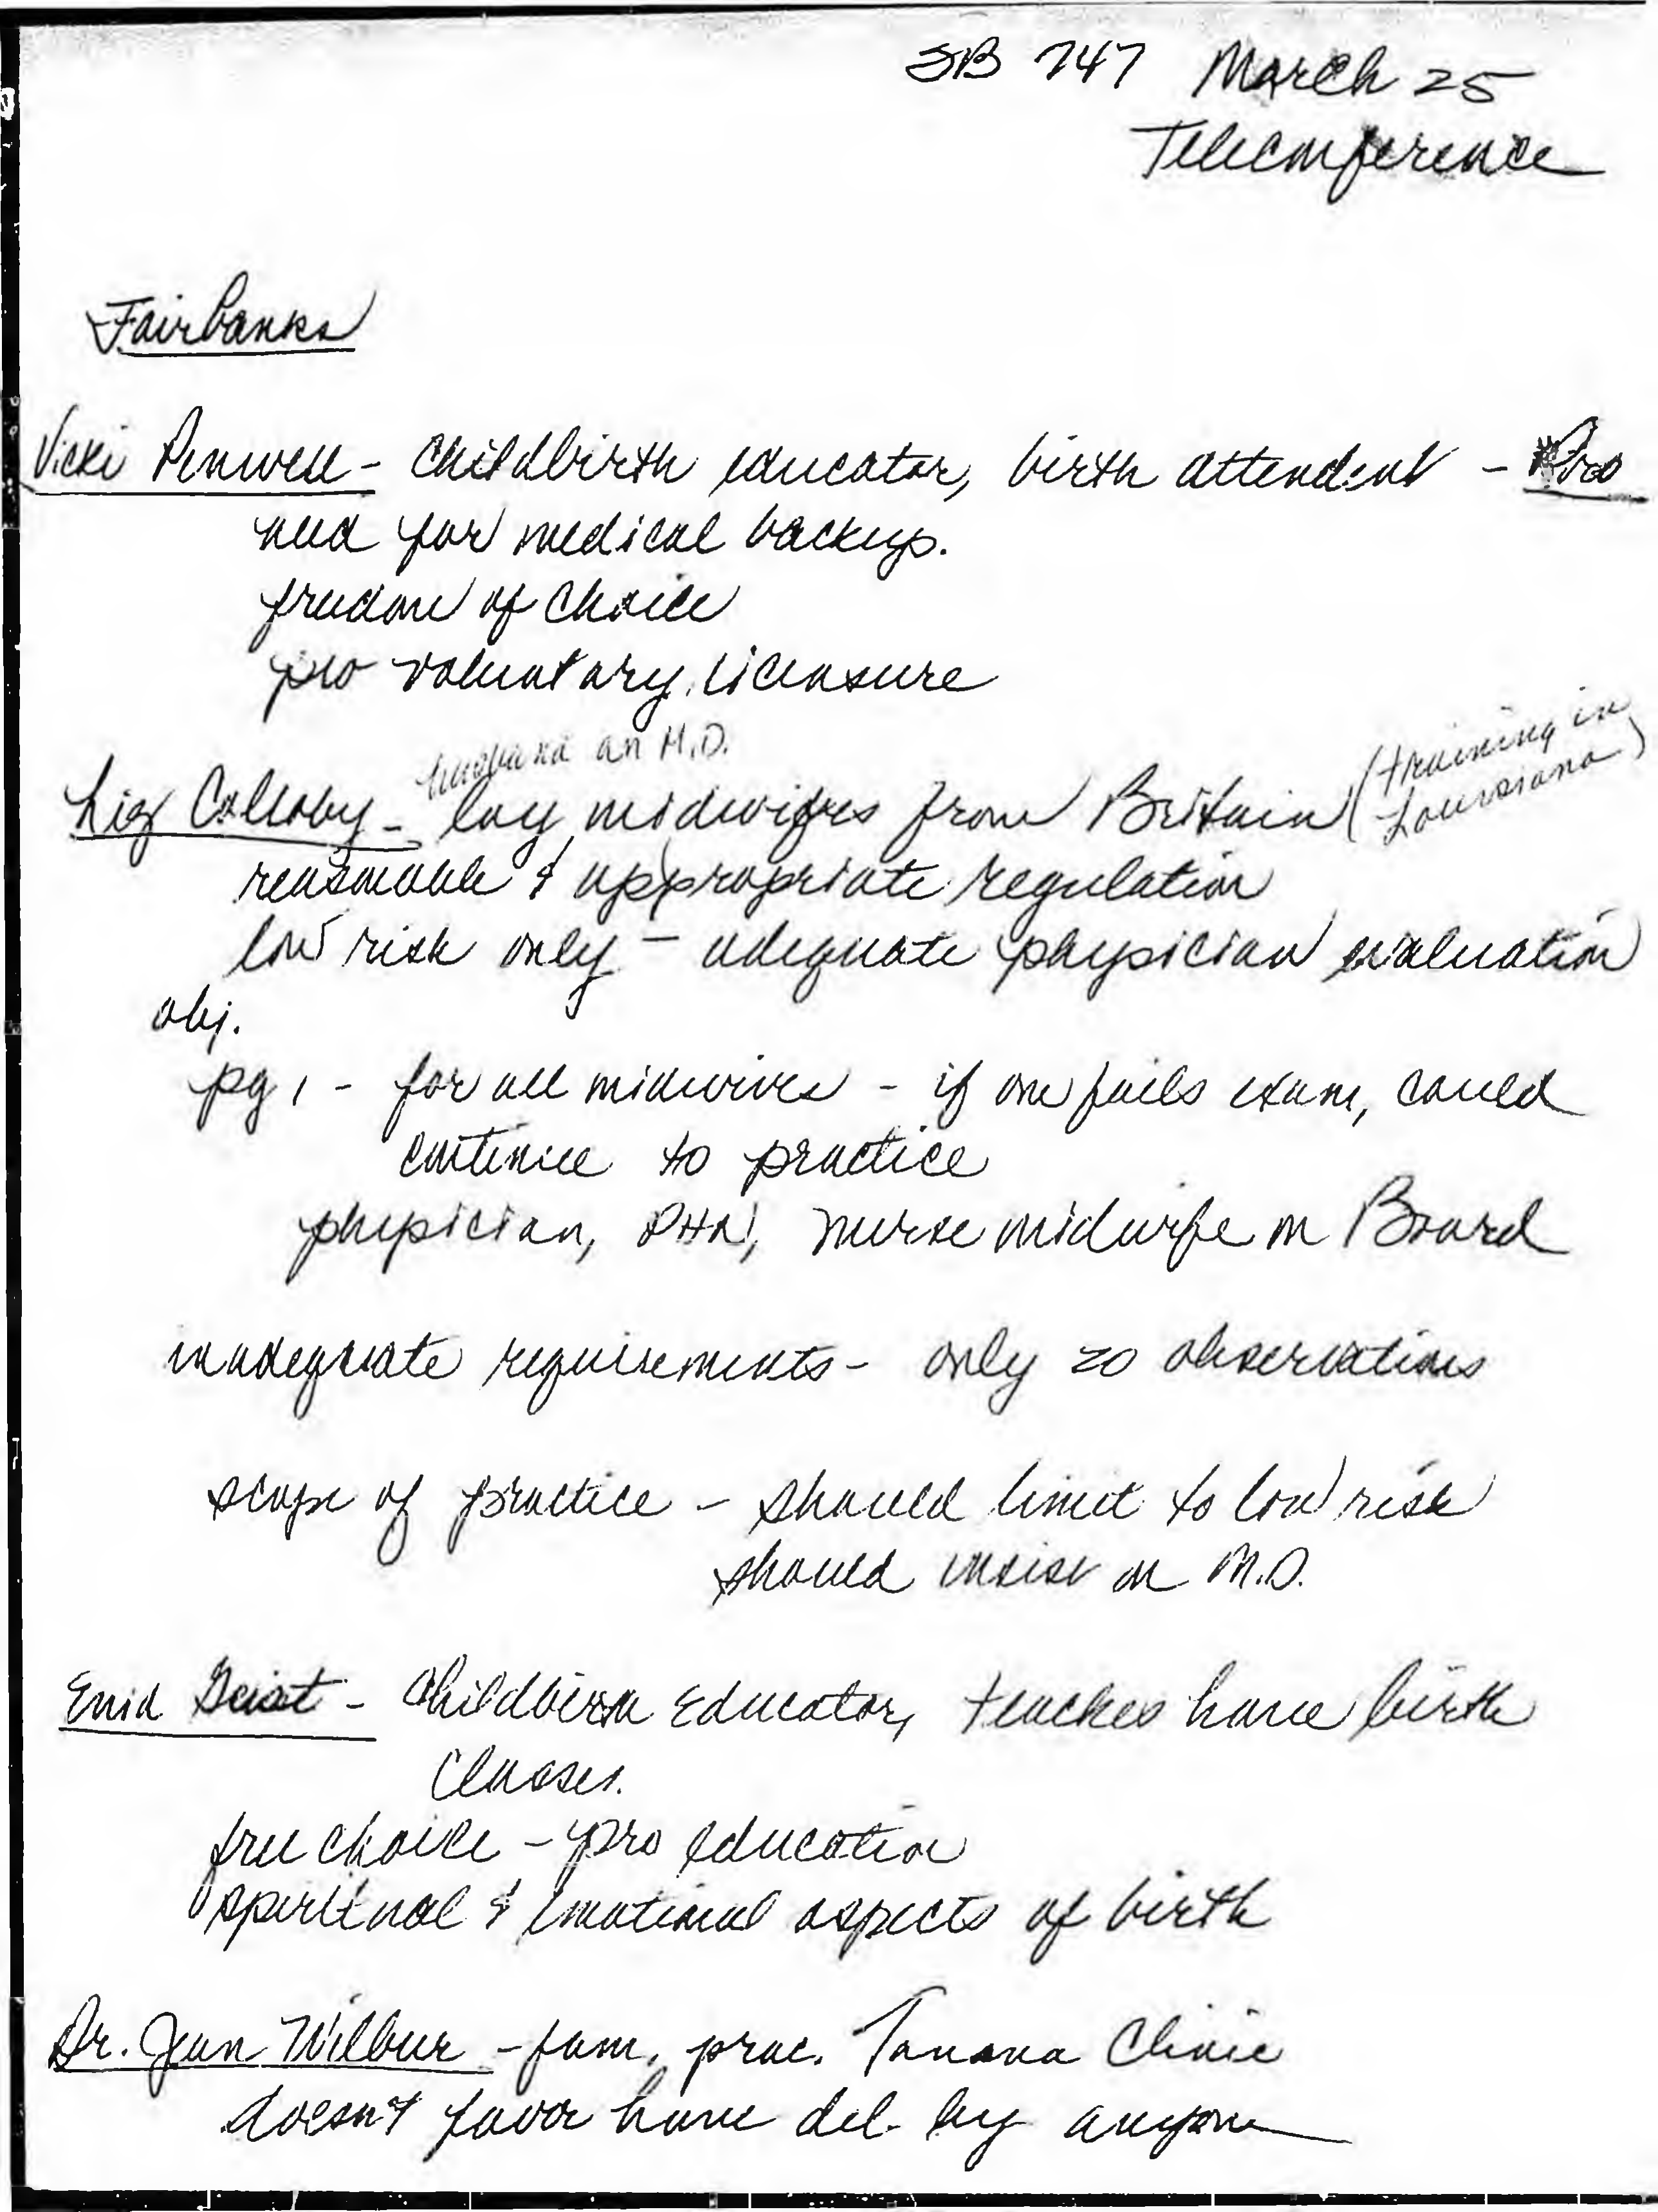 SB 747 March 25
Teleconference
Fairbanks
Vicki Penwell - Childbirth educator, birth attendent - Pro
need for medical backup.
freedom of choice
pro voluntary licensure
husband an M.D.
Liz - lay midwifes from Britain (training in Louisiana)
reasonable & appropriate regulation
low risk only - adequate physician evaluation
obj.
pg 1 - for all midwives - if one fails exam, could
continue to practice
physician, PHN, nurse midwife on Board
inadequate requirements - only 20 observations
scope of practice - should limit to low risk
should insist on M.D.
Enid - Childbirth Educator, teaches home birth
classes.
free choice - pro education
spiritual & emotional aspects of birth
Dr. Jean Wilbur - fam. prac. Tanana Clinic
doesn't favor home del. by anyone